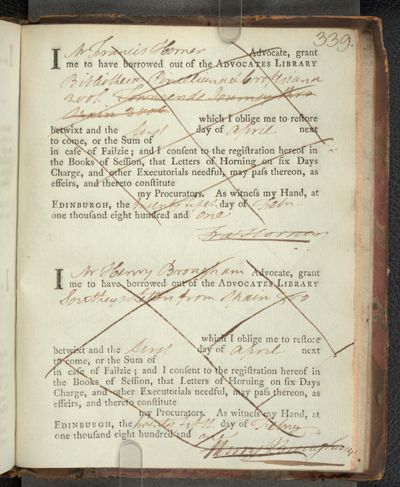 339.
I Mr Francis Horner Advocate, grant
me to have borrowed out of the ADVOCATES LIBRARY
Bibliotheca Pinelliana & Croftsiana
2 vols. Townsends Journey thro
Spain 2 vols
which I oblige me to reſtore
betwixt and the first day of April next
to come, or the Sum of
in caſe of Failzie; and I conſent to the regiſtration hereof in
the Books of Seſſion, that Letters of Horning on ſix Days
Charge, and other Executorials needful, may paſs thereon, as
effeirs, and thereto conſtitute
my Procurators. As witneſs my Hand, at
EDINBURGH, the day of
one thouſand eight hundred and one
Fra Horner
I Mr Henry Brougham Advocate, grant
me to have borrowed out of the ADVOCATES LIBRARY
Southey's letters from Spain 8vo
which I oblige me to reſtore
betwixt and the first day of April next
to come, or the Sum of
in caſe of Failzie; and I conſent to the regiſtration hereof in
the Books of Seſſion, that Letters of Horning on ſix Days
Charge, and other Executorials needful, may paſs thereon, as
effeirs, and thereto conſtitute
my Procurators. As witneſs my Hand, at
EDINBURGH, the day of
one thouſand eight hundred and one
Henry Brougham